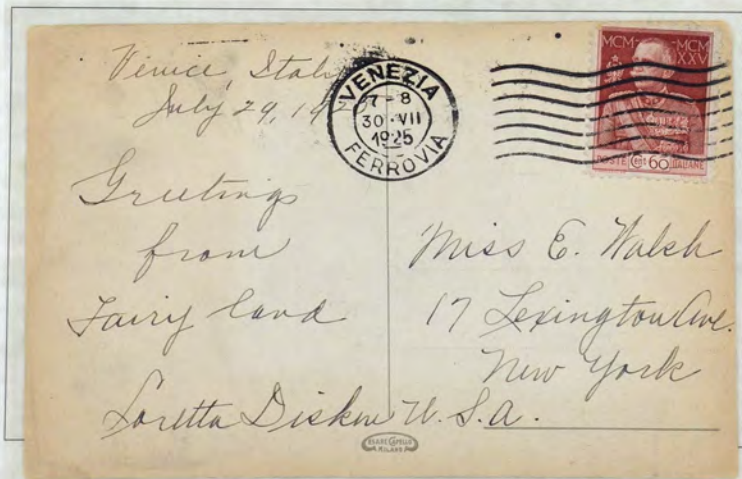 Venice, Italy
July 29, 1925
VENEZIA
7-8
30·VII
1925
FERROVIA
MCM MCM
XXV
POSTE Cent 60 ITALIANE
Greetings
from
Fairy land
Loretta Disken
Miss E. Walsh
17 Lexington Ave.
New York
U.S.A.
MILANO